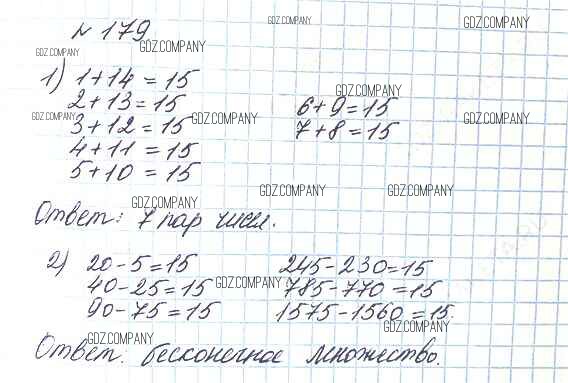 № 179
GDZ.COMPANY GDZ.COMPANY GDZ.COMPANY GDZ.COMPANY
1) 1+14 = 15
2+13 = 15 GDZ.COMPANY 6+9=15
GDZ.COMPANY 3+12 = 15 GDZ.COMPANY 7+8=15 GDZ.COMPANY
4+11 = 15
5+10 = 15
GDZ.COMPANY GDZ.COMPANY GDZ.COMPANY
Ответ: 7 пар чисел.
2) 20-5=15 245-230=15
40-25=15 GDZ.COMPANY 785-770=15
90-75=15 1575-1560=15.
GDZ.COMPANY GDZ.COMPANY
Ответ: бесконечное множество.